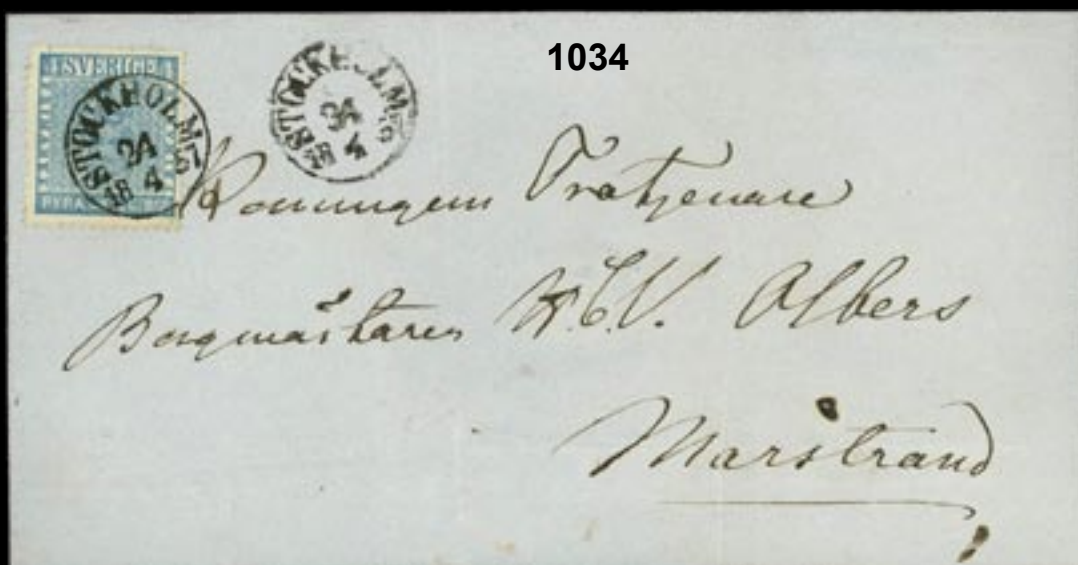 1034
SVERIGE
STOCKHOLM
24
18 4 57
STOCKHOLM
24
18 4
FYRA
Konungens Trotjenare
Borgmästaren H.C.V. Albers
Marstrand